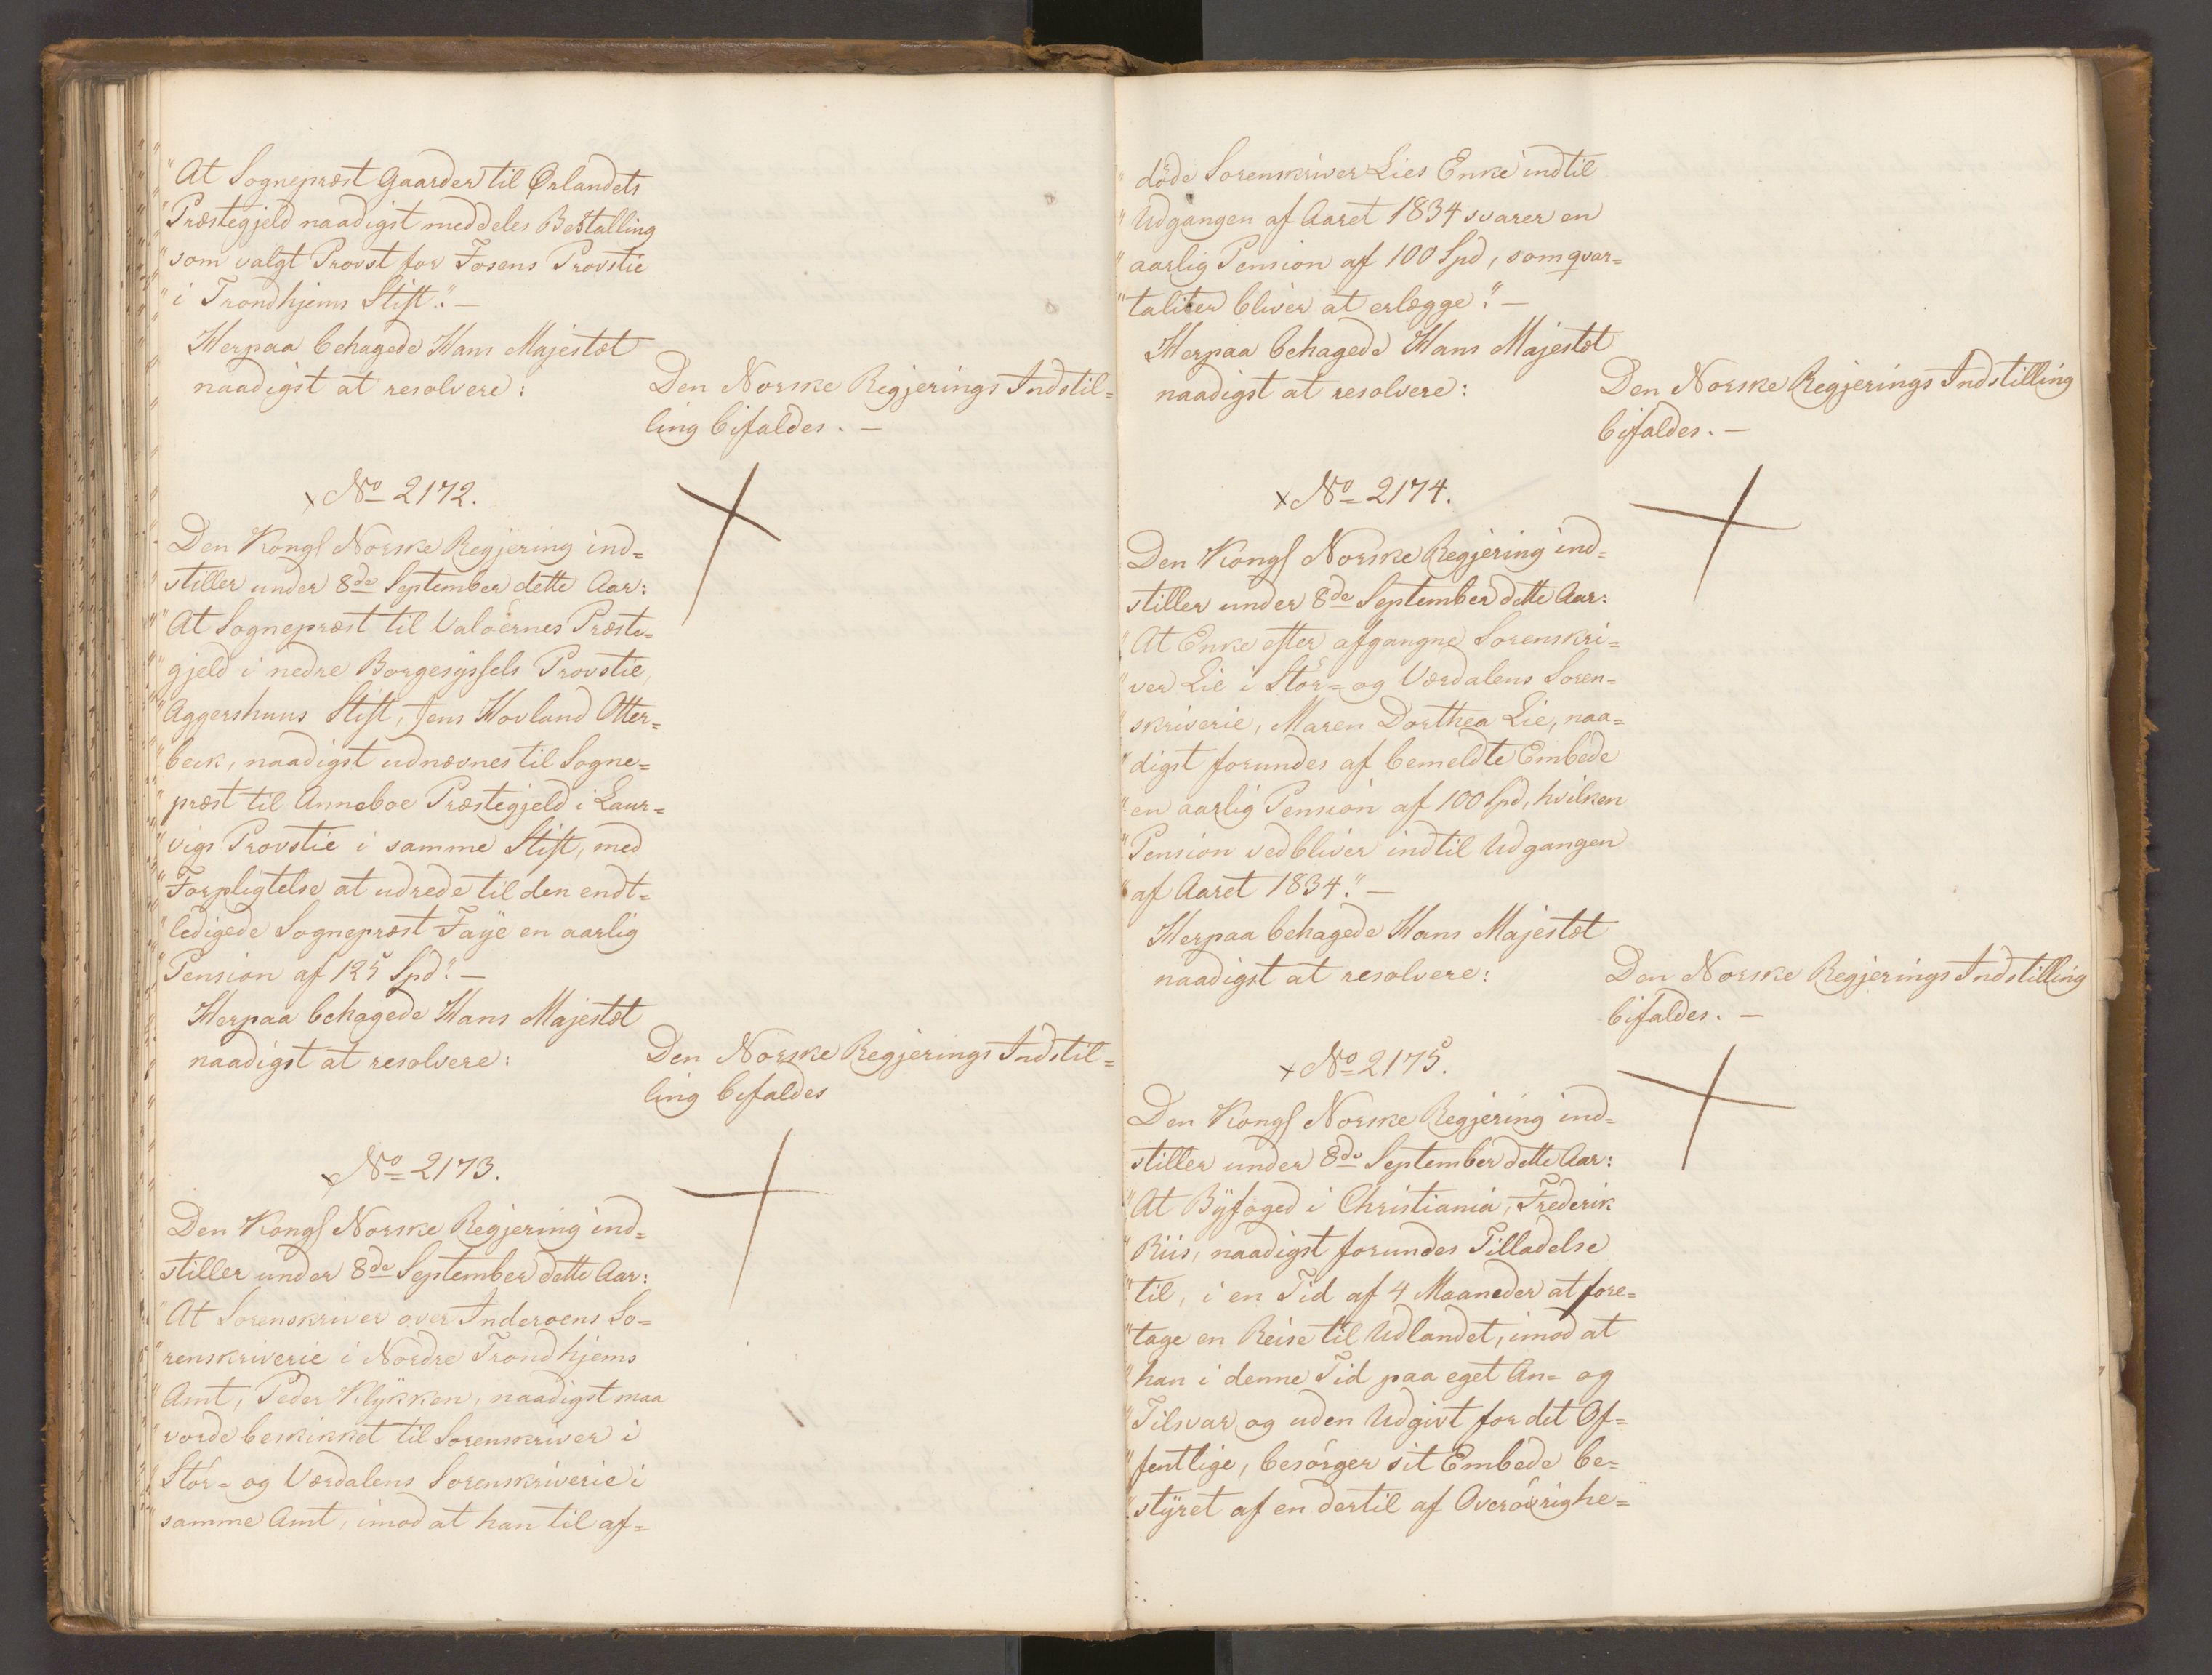 "At Sognepræst Gaarder til Ørlandets
"Præstegjeld naadigst meddeles Bestalling
"som valgt Provst for Fosens Provstie
"i Trondhjems Stift." —
Herpaa behagede Hans Majestæt
naadigst at resolvere:
Den Norske Regjerings Indstil=
ling bifaldes. —
x No 2172.
Den Kongl Norske Regjering ind=
stiller under 8de September dette Aar:
"At Sognepræst til Valöernes Præste=
"gjeld i nedre Borgesyssels Provstie,
"Aggershuus Stift, Jens Hovland Otter=
"beck, naadigst udnævnes til Sogne=
"præst til Anneboe Præstegjeld i Laur=
"vigs Provstie i samme Stift, med
"Forpligtelse at udrede til den endt=
"ledigede Sognepræst Faÿe en aarlig
"Pension af 125 Spd." —
Herpaa behagede Hans Majestæt
naadigst at resolvere:
Den Norske Regjerings Indstil=
ling bifaldes
x No 2173.
Den Kongl Norske Regjering ind=
stiller under 8de September dette Aar:
"At Sorenskriver over Inderoens So=
"renskriverie i Nordre Trondhjems
"Amt, Peder Klÿkken, naadigst maa
"vorde beskikket til Sorenskriver i
"Stör= og Værdalens Sorenskriverie i
"samme Amt, imod at han til af=
"döde Sorenskriver Lies Enke indtil
"Udgangen af Aaret 1834 svarer en
"aarlig Pension af 100 Spd, som qvar=
"taliter bliver at erlægge." —
Herpaa behagede Hans Majestæt
naadigst at resolvere:
Den Norske Regjerings Indstilling
bifaldes. —
x No 2174.
Den Kongl Norske Regjering ind=
stiller under 8de September dette Aar:
"At Enke efter afgangne Sorenskri=
"ver Lie i Stör= og Værdalens Soren=
"skriverie, Maren Dorthea Lie, naa=
"digst forundes af bemeldte Embede
"en aarlig Pension af 100 Spd, hvilken
"Pension vedbliver indtil Udgangen
"af Aaret 1834." —
Herpaa behagede Hans Majestæt
naadigst at resolvere:
Den Norske Regjerings Indstilling
bifaldes. —
x No 2175.
Den Kongl Norske Regjering ind=
stiller under 8de September dette Aar:
"At Bÿfoged i Christiania, Frederik
"Riis, naadigst forundes Tilladelse
"til, i en Tid af 4 Maaneder at fore=
"tage en Reise til Udlandet, imod at
"han i denne Tid paa eget An= og
"Tilsvar og uden Udgivt for det Of=
"fentlige, besörger sit Embede be=
"stÿret af en dertil af Overövrighe=